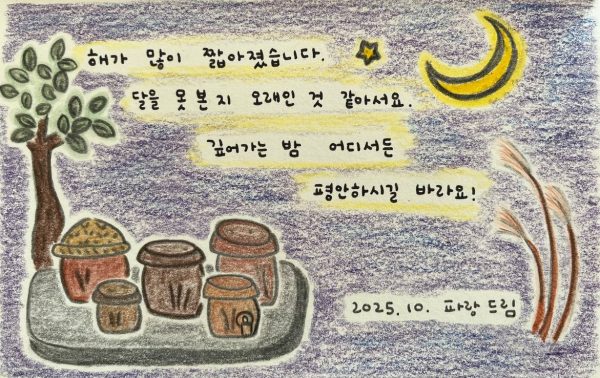 해가 많이 짧아졌습니다.
달을 못 본 지 오래인 것 같아서요.
깊어가는 밤 어디서든
평안하시길 바라요!
2025.10. 파랑 드림